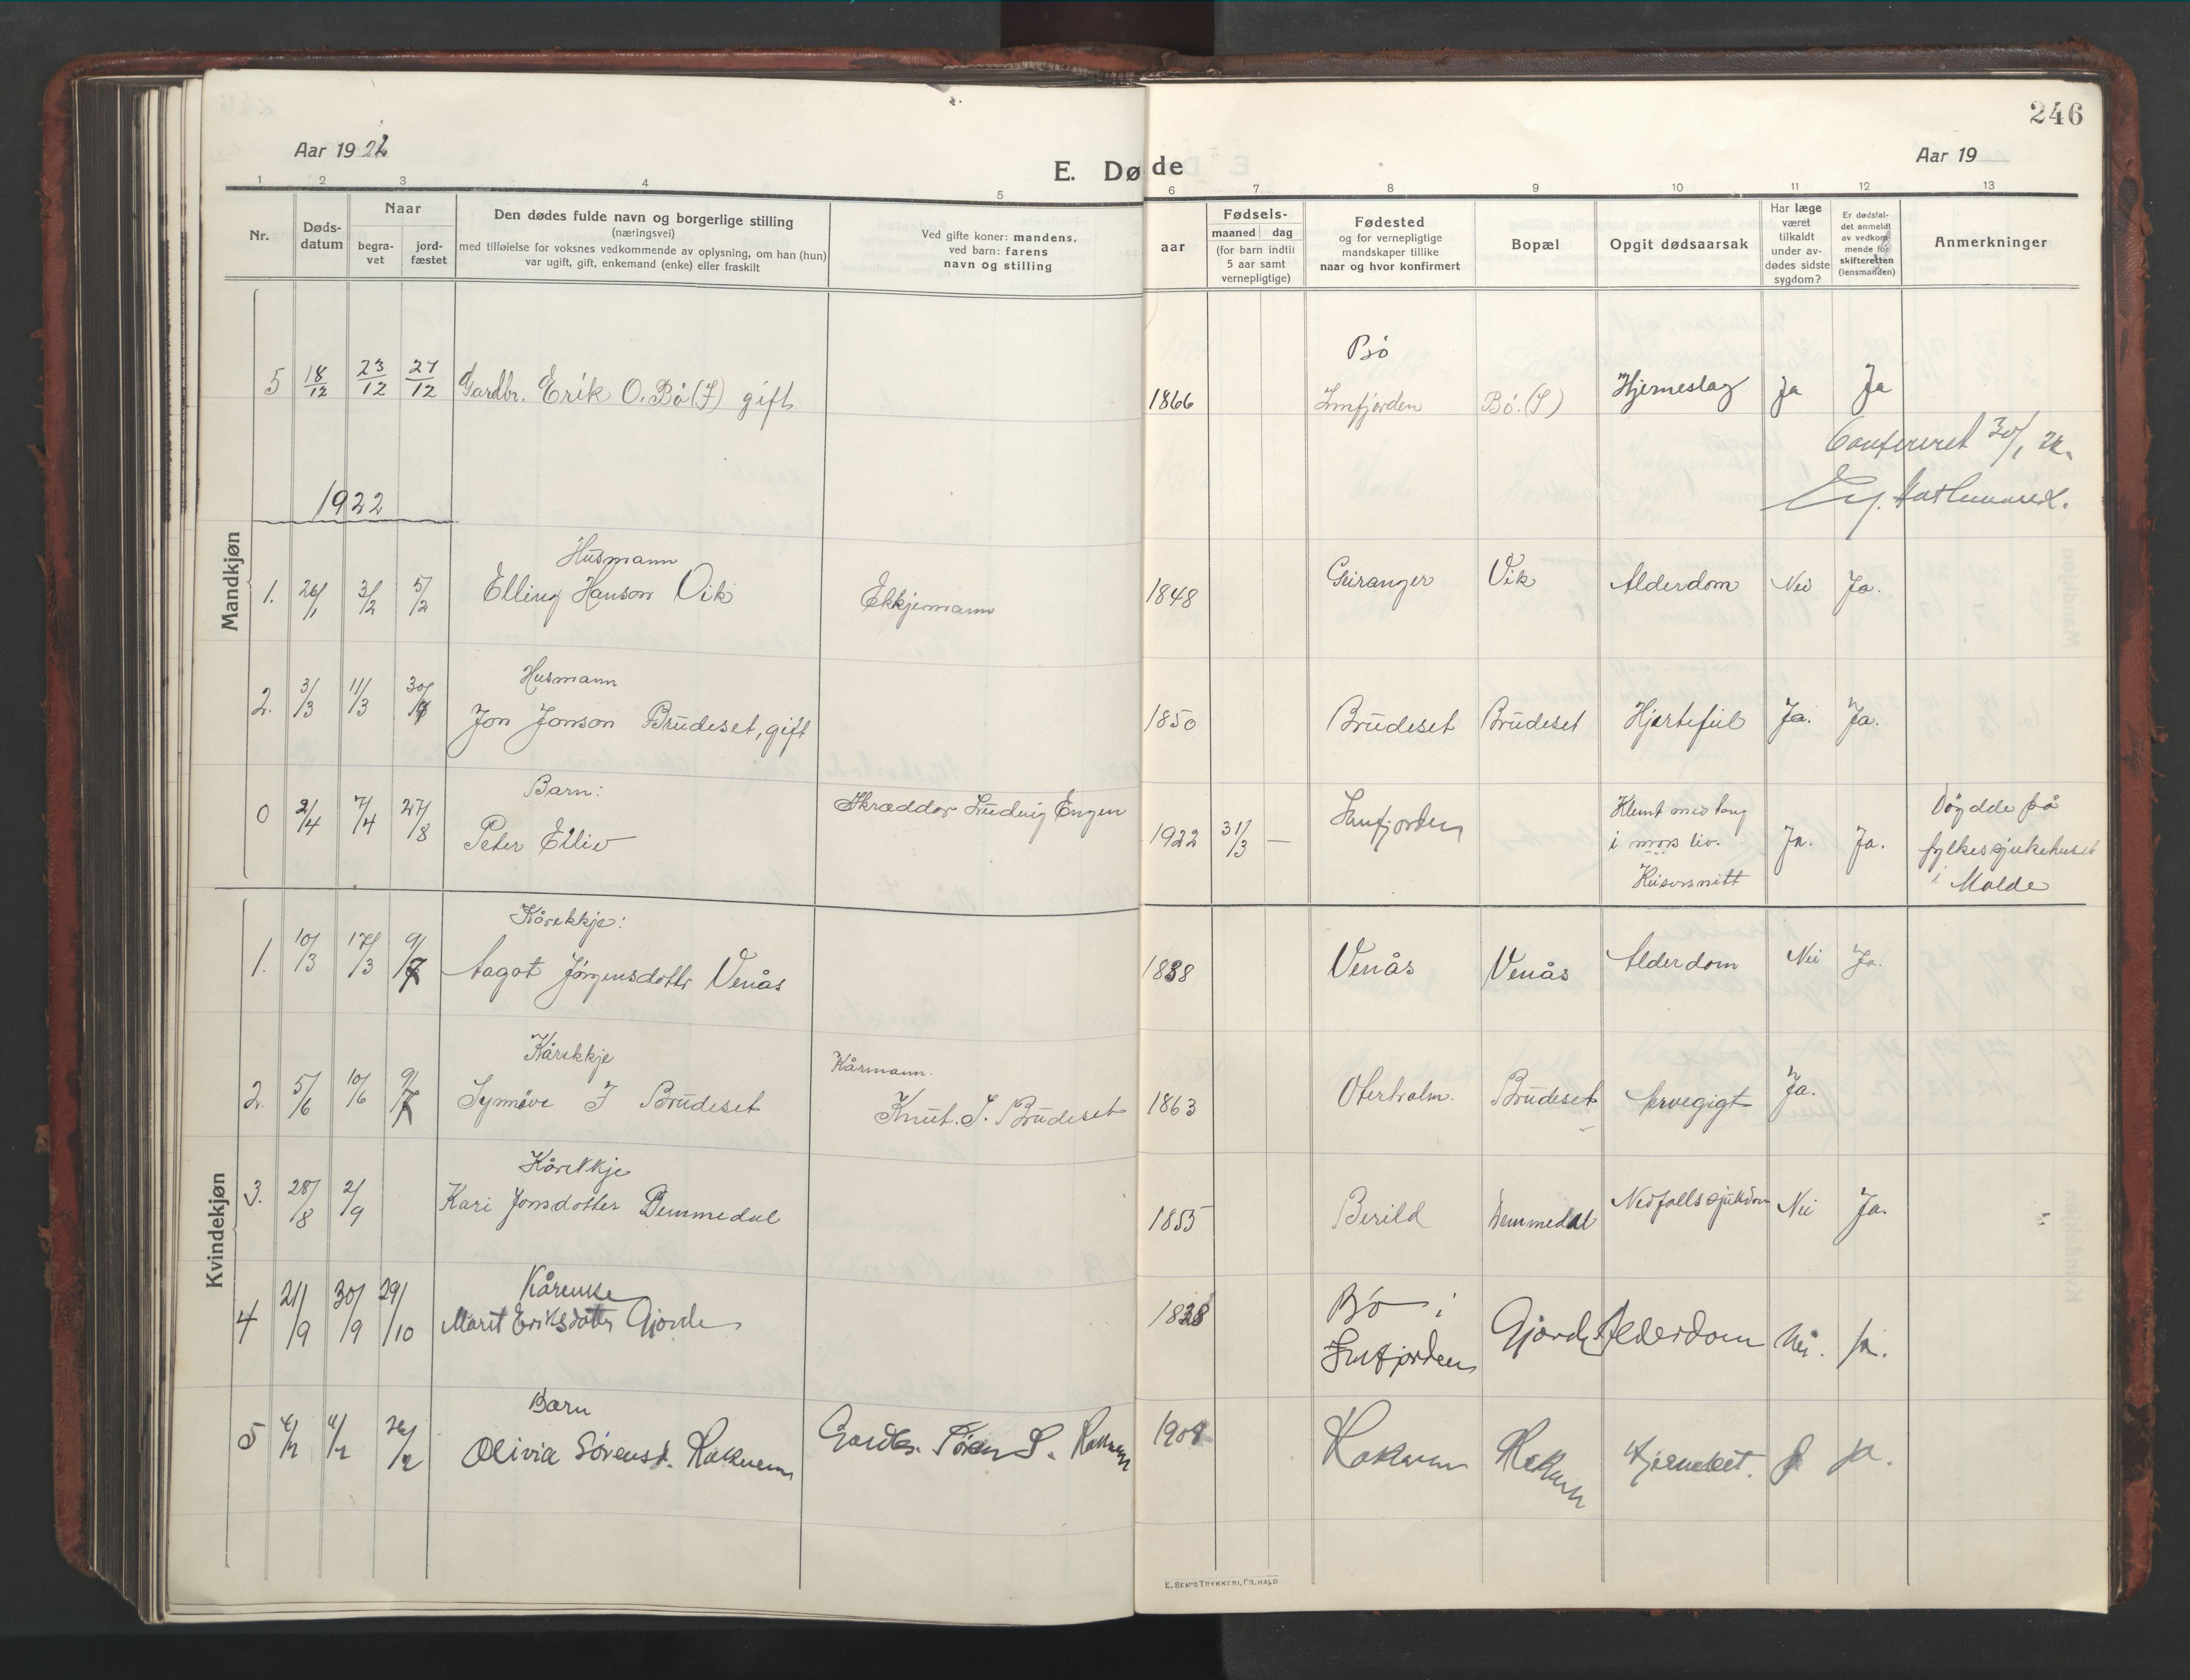 246
Aar 1922
Aar 19
E. Døde
1 2 3 4 5 6 7 8 9 10 11 12 13
Nr.
Døds-
datum
Naar
begra-
vet
jord-
fæstet
Den dødes fulde navn og borgerlige stilling
(næringsvei)
med tilføielse for voksnes vedkommende av oplysning, om han (hun)
var ugift, gift, enkemand (enke) eller fraskilt
Ved gifte koner: mandens,
ved barn: farens
navn og stilling
aar
Fødsels-
maaned dag
(for barn indtil
5 aar samt
vernepligtige)
Fødested
og for vernepligtige
mandskaper tillike
naar og hvor konfirmert
Bopæl
Opgit dødsaarsak
Har læge
været
tilkaldt
under av-
dødes sidste
sygdom?
Er dødsfal-
det anmeldt
av vedkom-
mende for
skifteretten
(lensmanden)
Anmerkninger
Mandkjøn
Bø
5 18/12 23/12 27/12 Gardbr. Erik O. Bø (I) gift 1866 Innfjorden Bø. (I) Hjerneslag Ja Ja
Confereret 30/1 22.
1922
Husmann
1. 26/1 3/2 5/2 Elling Hanson Vik Ekkjemann 1848 Geiranger Vik Alderdom Nei Ja.
Husmann
2. 3/3 11/3 30/4 Jon Jonson Brudeset, gift 1850 Brudeset Brudeset Hjertefeil Ja. Ja.
Barn:
0 2/4 7/4 27/8 Peter Elliv Skræddar Ludvig Engen 1922 31/3 — Innfjorden Klemt med tang
i mors liv.
Keisersnitt
Ja. Ja.
Døydde på
fylkessjukehuset
i Molde
Kvindekjøn
Kårekkje:
1. 10/3 17/3 9/7 Aagot Jørgensdotter Venås 1838 Venås Venås Alderdom Nei Ja.
Kårekkje
Kårmann.
2. 5/6 10/6 9/7 Synnöve J Brudeset Knut. S. Brudeset 1863 Oterholm. Brudeset Nervegigt Ja.
Kårekkje
3. 28/8 2/9 Kari Jonsdotter Demmedal 1855 Berild Demmedal Nedfallssjukdom Nei Ja.
Kårenke
4 21/9 30/9 29/10 Marit Eriksdotter Gjorde 1838 Bø i
Innfjorden
Gjorde Alderdom Nei. Ja.
Barn
5 Olivia Sørensd. Kokvem Gardbr. Søren S. 1908 Ja.
E. SEM'S TRYKKERI, FR.HALD